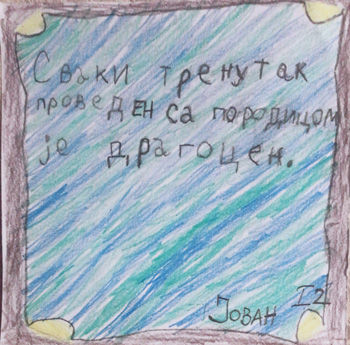 Сваки тренутак
проведен са породицом
је драгоцен.
Јован I2